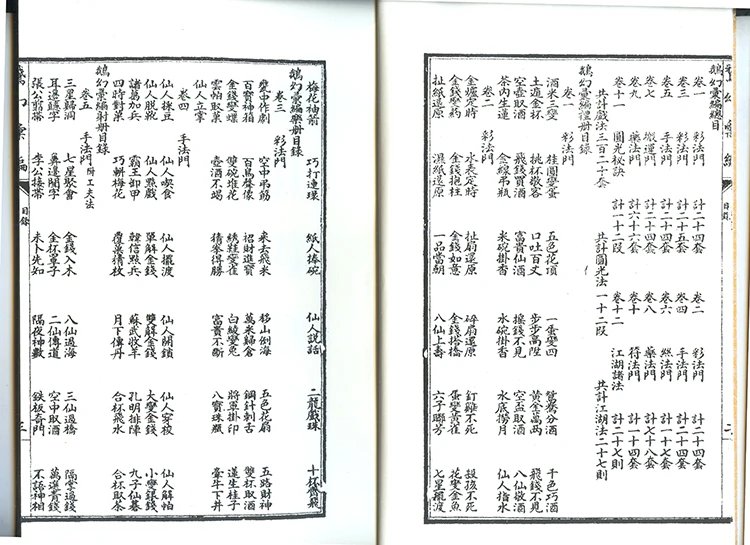 鵝幻彙編總目
卷一 彩法門 計二十四套 卷二 彩法門 計二十四套
卷三 彩法門 計二十五套 卷四 手法門 計二十四套
卷五 手法門 計二十四套 卷六 絲法門 計二十四套
卷七 搬運門 計二十四套 卷八 藥法門 計七十八套
卷九 藥法門 計六十六套 卷十 符法門 計一十四套
卷十一 圓光秘訣 計一十二段 卷十二 江湖諸法 計二十七則
共計戲法三百二十套 共計圓光法一十二段 共計江湖法二十七則
鵝幻彙編禮册目錄
卷一 彩法門
酒米三變 桂圓變蛋 五色花項 一蛋變四 鴛鴦分酒 十色巧酒
土遁金杯 桃杯敬客 口吐百丈 步步高陞 黃金萬兩 飛錢不見
空壺取酒 飛錢買酒 富貴仙酒 搖錢不見 空盃取酒 八仙敬酒
茶內生蓮 金線吊瓶 米碗掛香 水碗掛香 水底撈月 仙人指水
卷二 彩法門
金壺定時 水表定時 扯扇還原 碎扇還原 釘雞不死 殺孩不死
金錢變豹 金錢抱柱 金錢如意 金錢搭橋 蛋變黃雀 花變金魚
扯紙還原 濕紙還原 一品當朝 八仙上壽 六子聯芳 七星擺渡
目錄
二
梅花袖箭 巧打連環 紙人捧碗 仙人說話 二龍戲珠 十杯齊飛
鵝幻彙編樂册目錄
卷三 彩法門
甕中作劇 空中吊筋 來去飛米 移山倒海 五色花扇 五路財神
百寶神箱 百鳥聲像 招財進寶 萬米歸倉 鋼針刺舌 雙杯取酒
金錢變蝶 雙碗堆花 綉鞋變雀 白綾變兔 將軍掛印 蓮生桂子
雲帕取菓 壺酒不竭 猜拳得勝 富貴不斷 八寶珠瓶 牽牛下井
仙人立掌
卷四 手法門
仙人採豆 仙人吸食 仙人擺渡 仙人開鎖 仙人穿梭 仙人解帕
仙人脫靴 仙人點戲 單解金錢 雙解金錢 大變金錢 小變銀錢
諸葛加兵 霸王卸甲 韓信點兵 蘇武牧羊 孔明排陣 九子仙碁
四時對菓 巧斬梅花 覆菓猜枚 月下傳丹 合杯飛水 合杯取茶
鵝幻彙編射册目錄
卷五 手法門 附工夫法
三星歸洞 七星聚會 金錢入木 八仙過海 三仙過橋 隔掌過錢
耳邊聽字 鼻邊聞字 金杯覆子 二仙傳道 空中取酒 萬選青錢
張公剪帶 李公接帶 未卜先知 隔夜神數 鐵板奇門 不語神相
鵝幻彙編
目錄
三